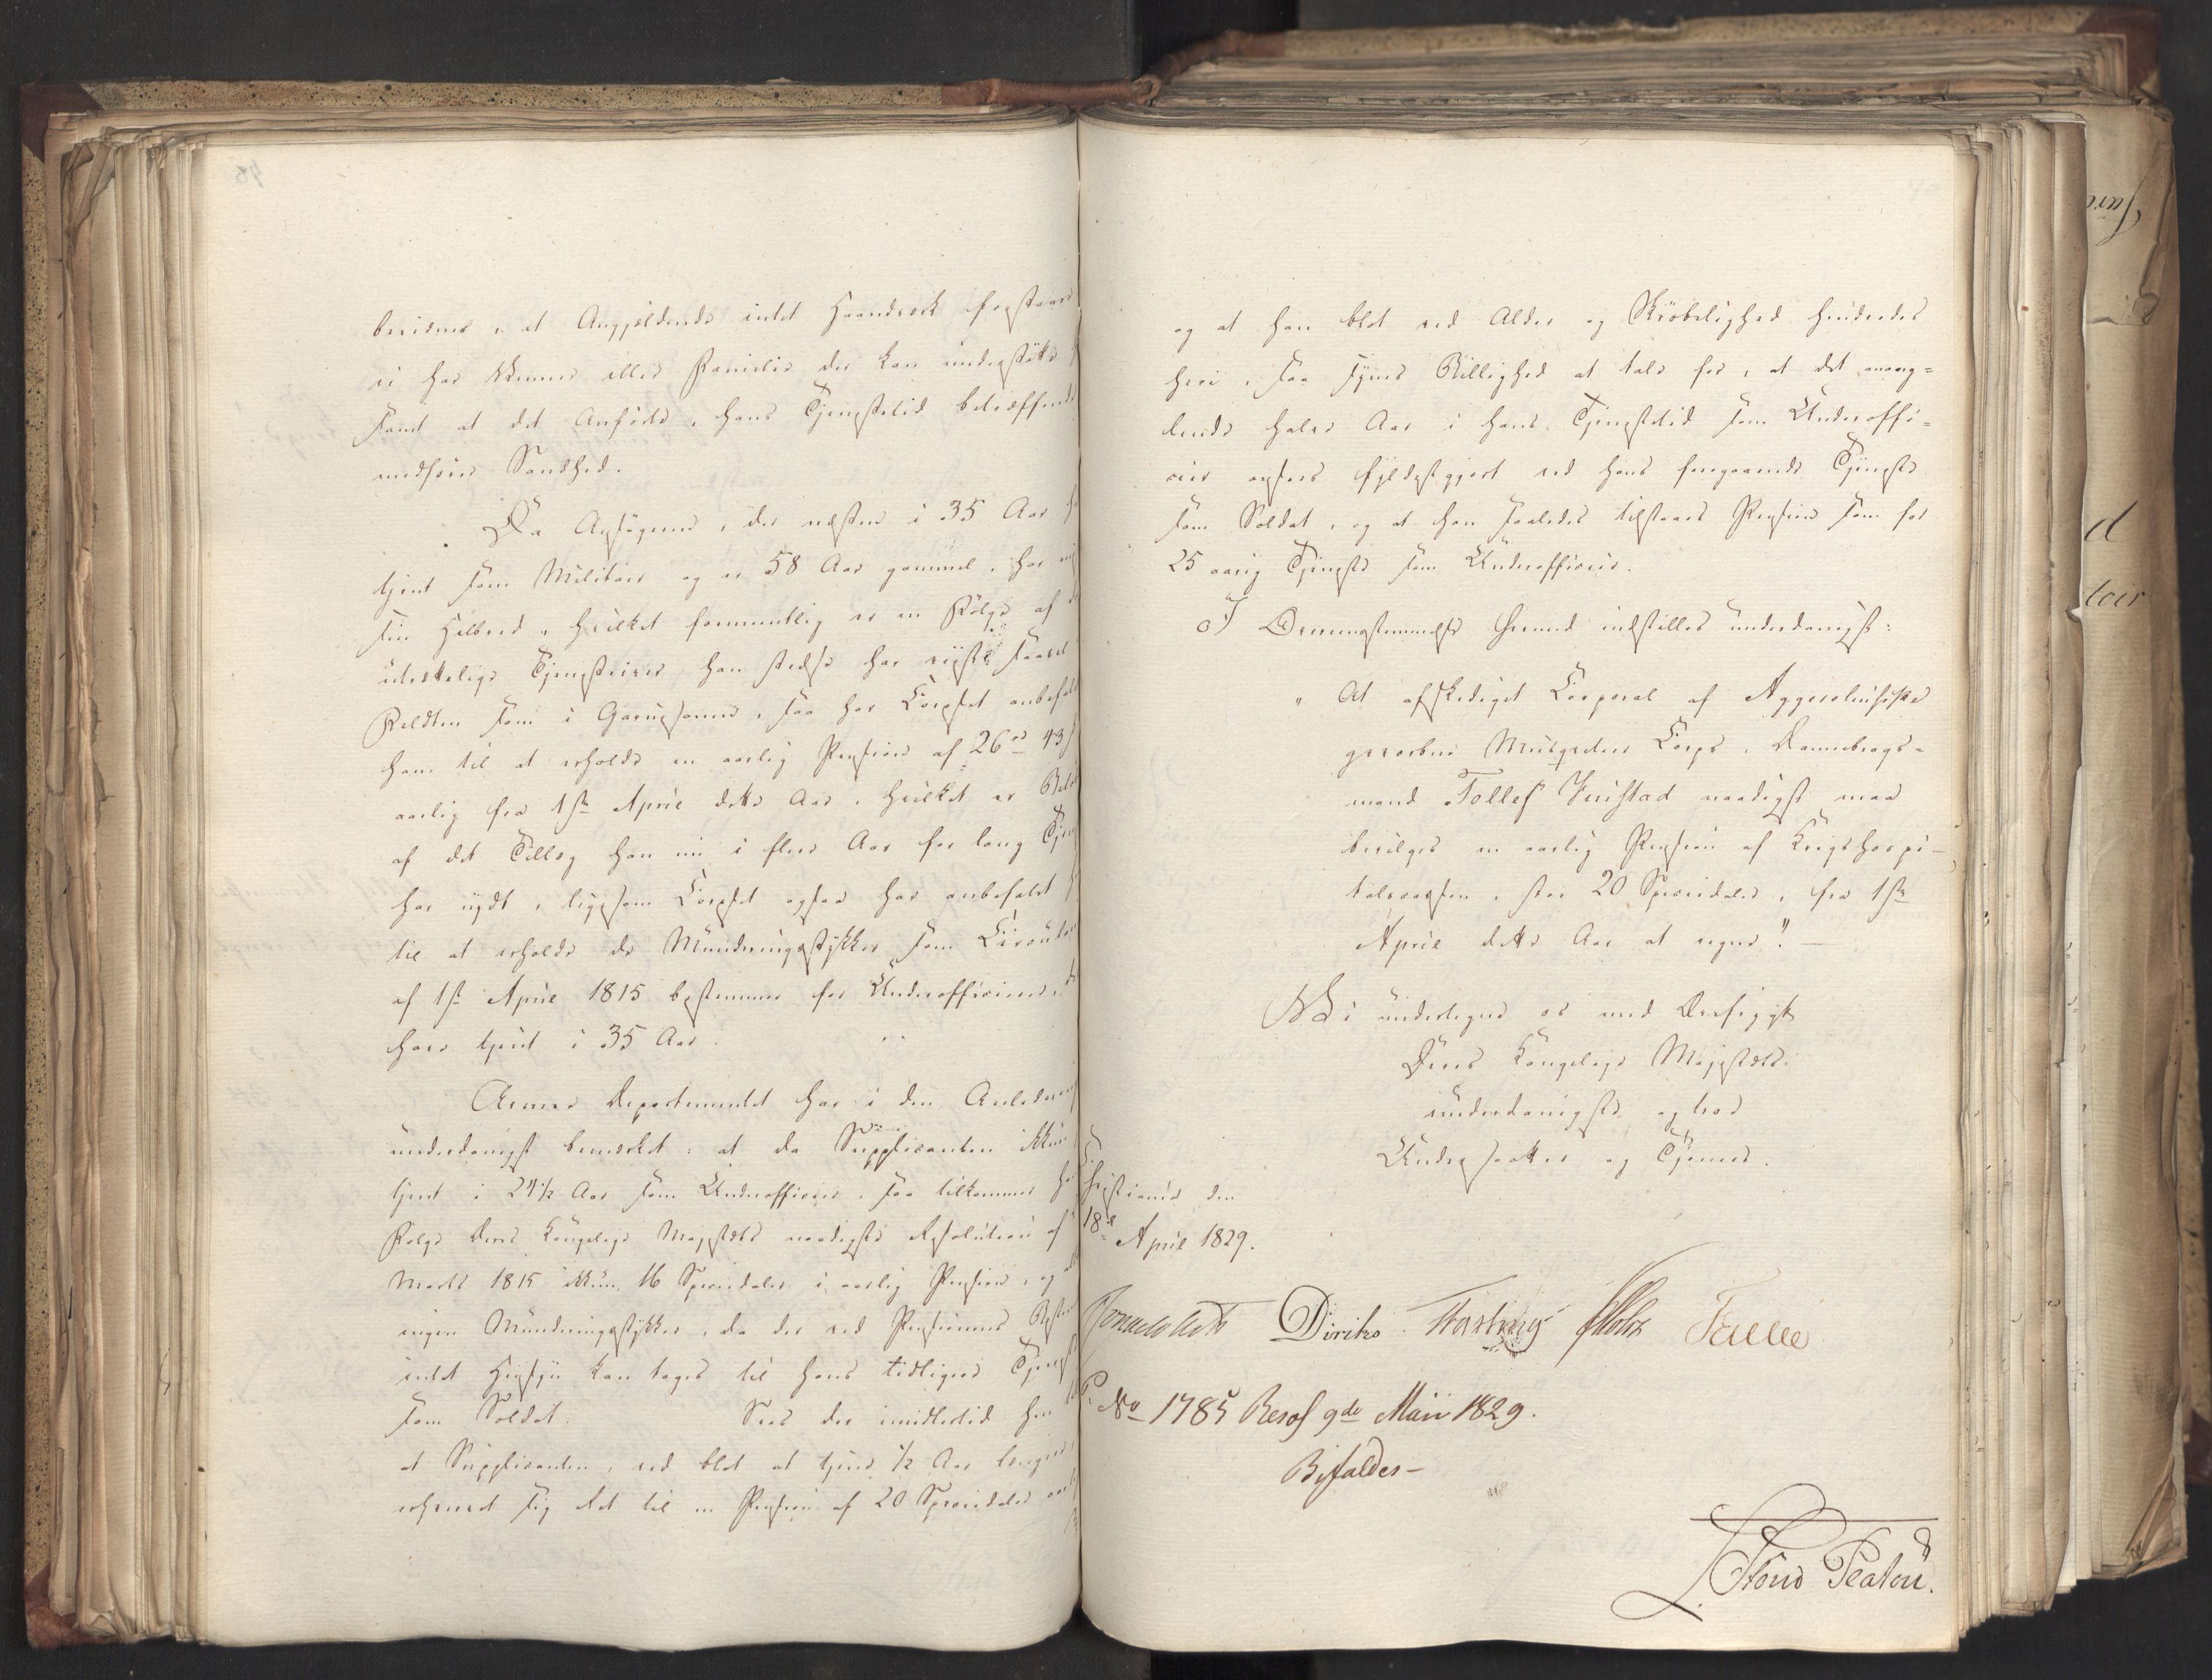 bevidner, at Angjeldende intet Haandværk forstaaer
ei har Venner eller Familie der kan understøtte
samt at det Anførte, hans Tjenstetid betræffende
medfører Sandhed.
Da Ansøgeren, der næsten i 35 Aar
tjent som Militair og er 58 Aar gammel, har
sin Helbred, hvilket formentlig er en Følge af
udmærkelige Tjensteiver han stedse har viist saavel
Feldten som i Garnisonen, saa har Corpset anbefalet
ham til at erholde en aarlig Pension af 26 43
aarlig fra 1ste April dette Aar, hvilket er
af det Tillæg han nu i flere Aar for lang
har nydt, ligesom Corpset ogsaa har anbefalet
til at erholde de Munderingsstykker som Circulaire
af 1ste April 1815 bestemmer for Underofficierer,
have tjent i 35 Aar.
Armee Departementet har i den Anledning
underdanigst bemærket: at da Supplicanten ikkun
tjent i 24 1/2 Aar som Underofficier, saa tilkommer
Følge Deres Kongelige Majestæts naadigste Resolution af
Marts 1815 ikkun 16 Speciedaler i aarlig Pension, og
ingen Munderingsstykker, da der ved Pensionens
intet Hensyn kan tages til hans tidligere
som Soldat. Sees der imidlertid hen
at Supplicanten, ved blot at tjene 1/2 Aar længer
erhvervet sig Ret til en Pension af 20 Speciedaler
og at han blot ved Alder og Skrøbelighed hindredes
heri, saa synes Billighed at tale for, at det mang-
lende halve Aar i hans Tjenstetid som Underoffi-
cier ansees fyldestgjort ved hans foregaaende Tjeneste
som Soldat, og at han saaledes tilstaaes Pension som for
25 aarig Tjeneste som Underofficier.
I Overensstemmelse hermed indstilles underdanigst:
" At afskediget Corporal af Aggershusiske
gevorbne Musqueteer Corps, Dannebrogs-
mand Tollef naadigst maa
bevilges en aarlig Pension af Krigshospi-
talscassen, stor 20 Speciedaler, fra 1ste
April dette Aar at regne." —
Vi undertegne os med Ærefrygt
Deres Kongelige Majestæts
underdanigste og troe
Undersaatter og Tjenere.
Christiania den
18de April 1829.
Diriks Fasting Holst
P. No 1785 Resol 9de Maii 1829.
Bifaldes-